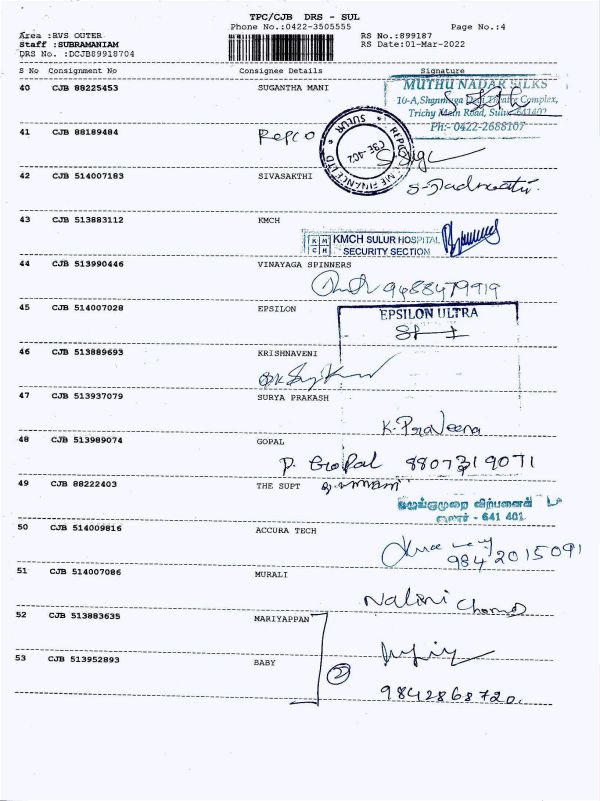 TPC/CJB DRS - SUL
Phone No.:0422-3505555 Page No.:4
Area :RVS OUTER RS No.:899187
Staff :SUBRAMANIAM RS Date:01-Mar-2022
DRS No. :DCJB89918704
S No Consignment No Consignee Details Signature
40 CJB 88225453 SUGANTHA MANI
MUTHU NADAR SILKS
10-A, Shanmuga Devi Theatre Complex,
Trichy Main Road, Sulur-641402
PH:- 0422-2688107
41 CJB 88189484 Repco
SULUR
CBE-402
42 CJB 514007183 SIVASAKTHI
43 CJB 513883112 KMCH
KMCH KMCH SULUR HOSPITAL
SECURITY SECTION
44 CJB 513990446 VINAYAGA SPINNERS
9488479919
45 CJB 514007028 EPSILON
EPSILON ULTRA
46 CJB 513889693 KRISHNAVENI
47 CJB 513937079 SURYA PRAKASH
K. Praveena
48 CJB 513989074 GOPAL
P. Gopal 8807319071
49 CJB 88222403 THE SUPT
ஒழுங்குமுறை விற்பனைக்
சூலூர் - 641 401
50 CJB 514009816 ACCURA TECH
9842015091
51 CJB 514007086 MURALI
Nalini
52 CJB 513883635 MARIYAPPAN
53 CJB 513952893 BABY
2
9842868720.